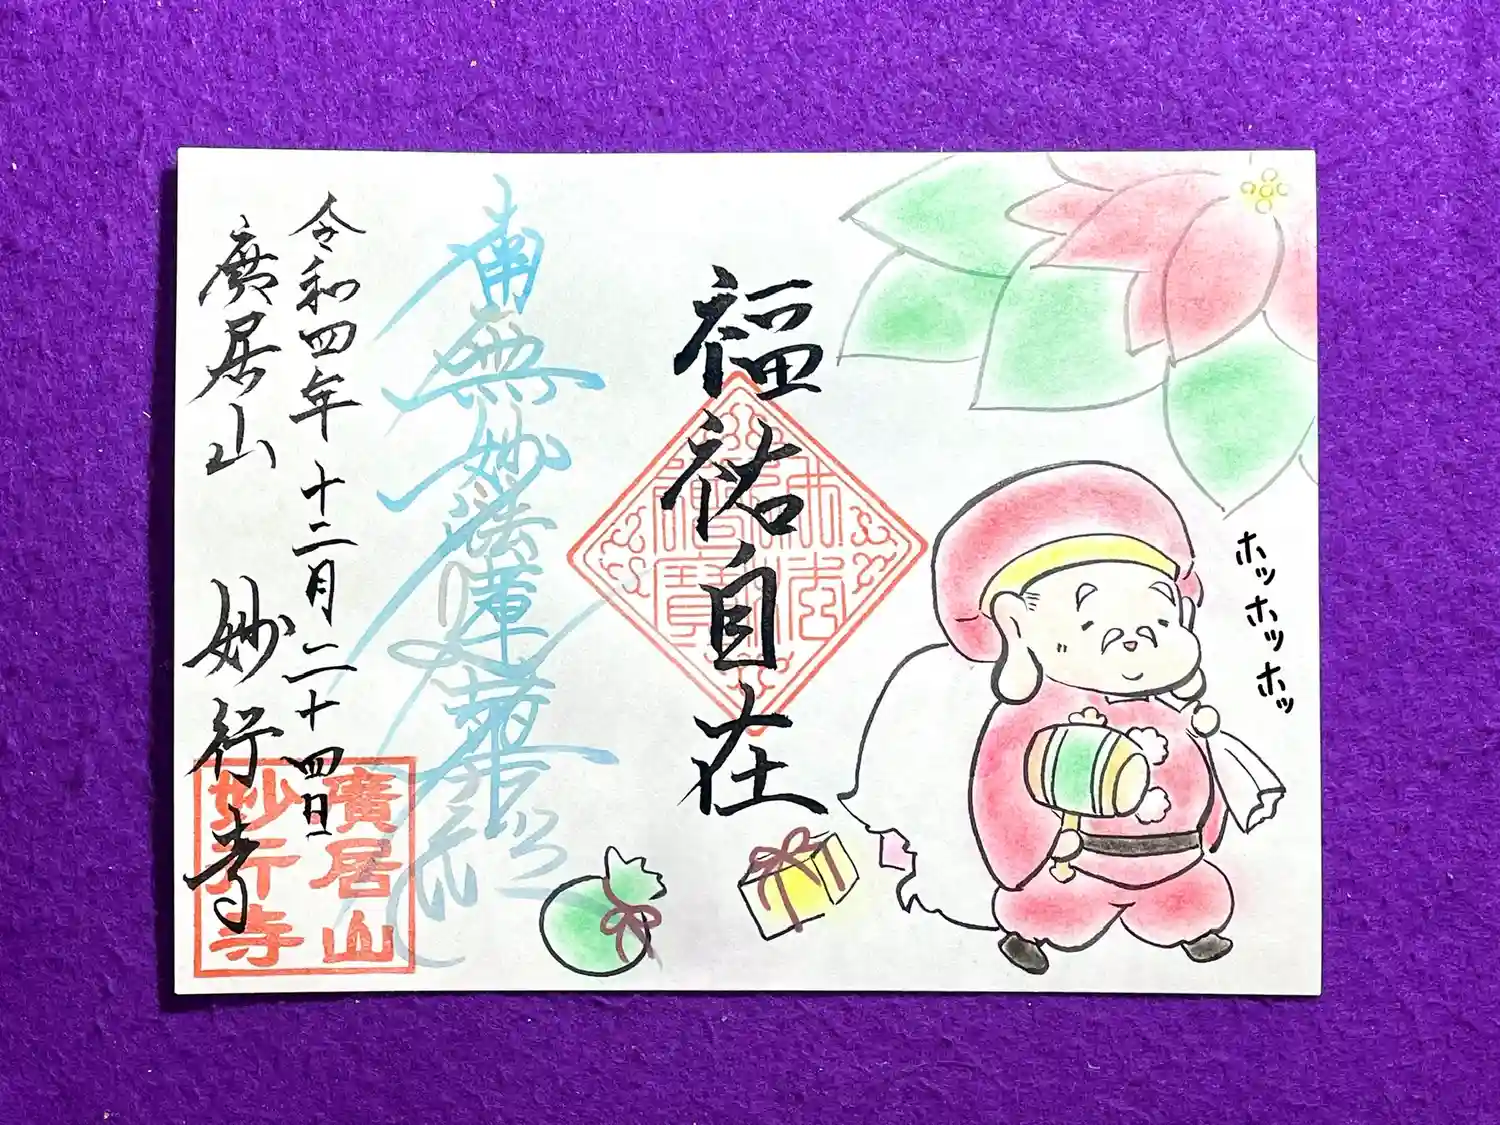 ホッホッホッ
福祐自在
南無妙法蓮華経
令和四年十二月二十四日
廣居山 妙行寺
廣居山
妙行寺